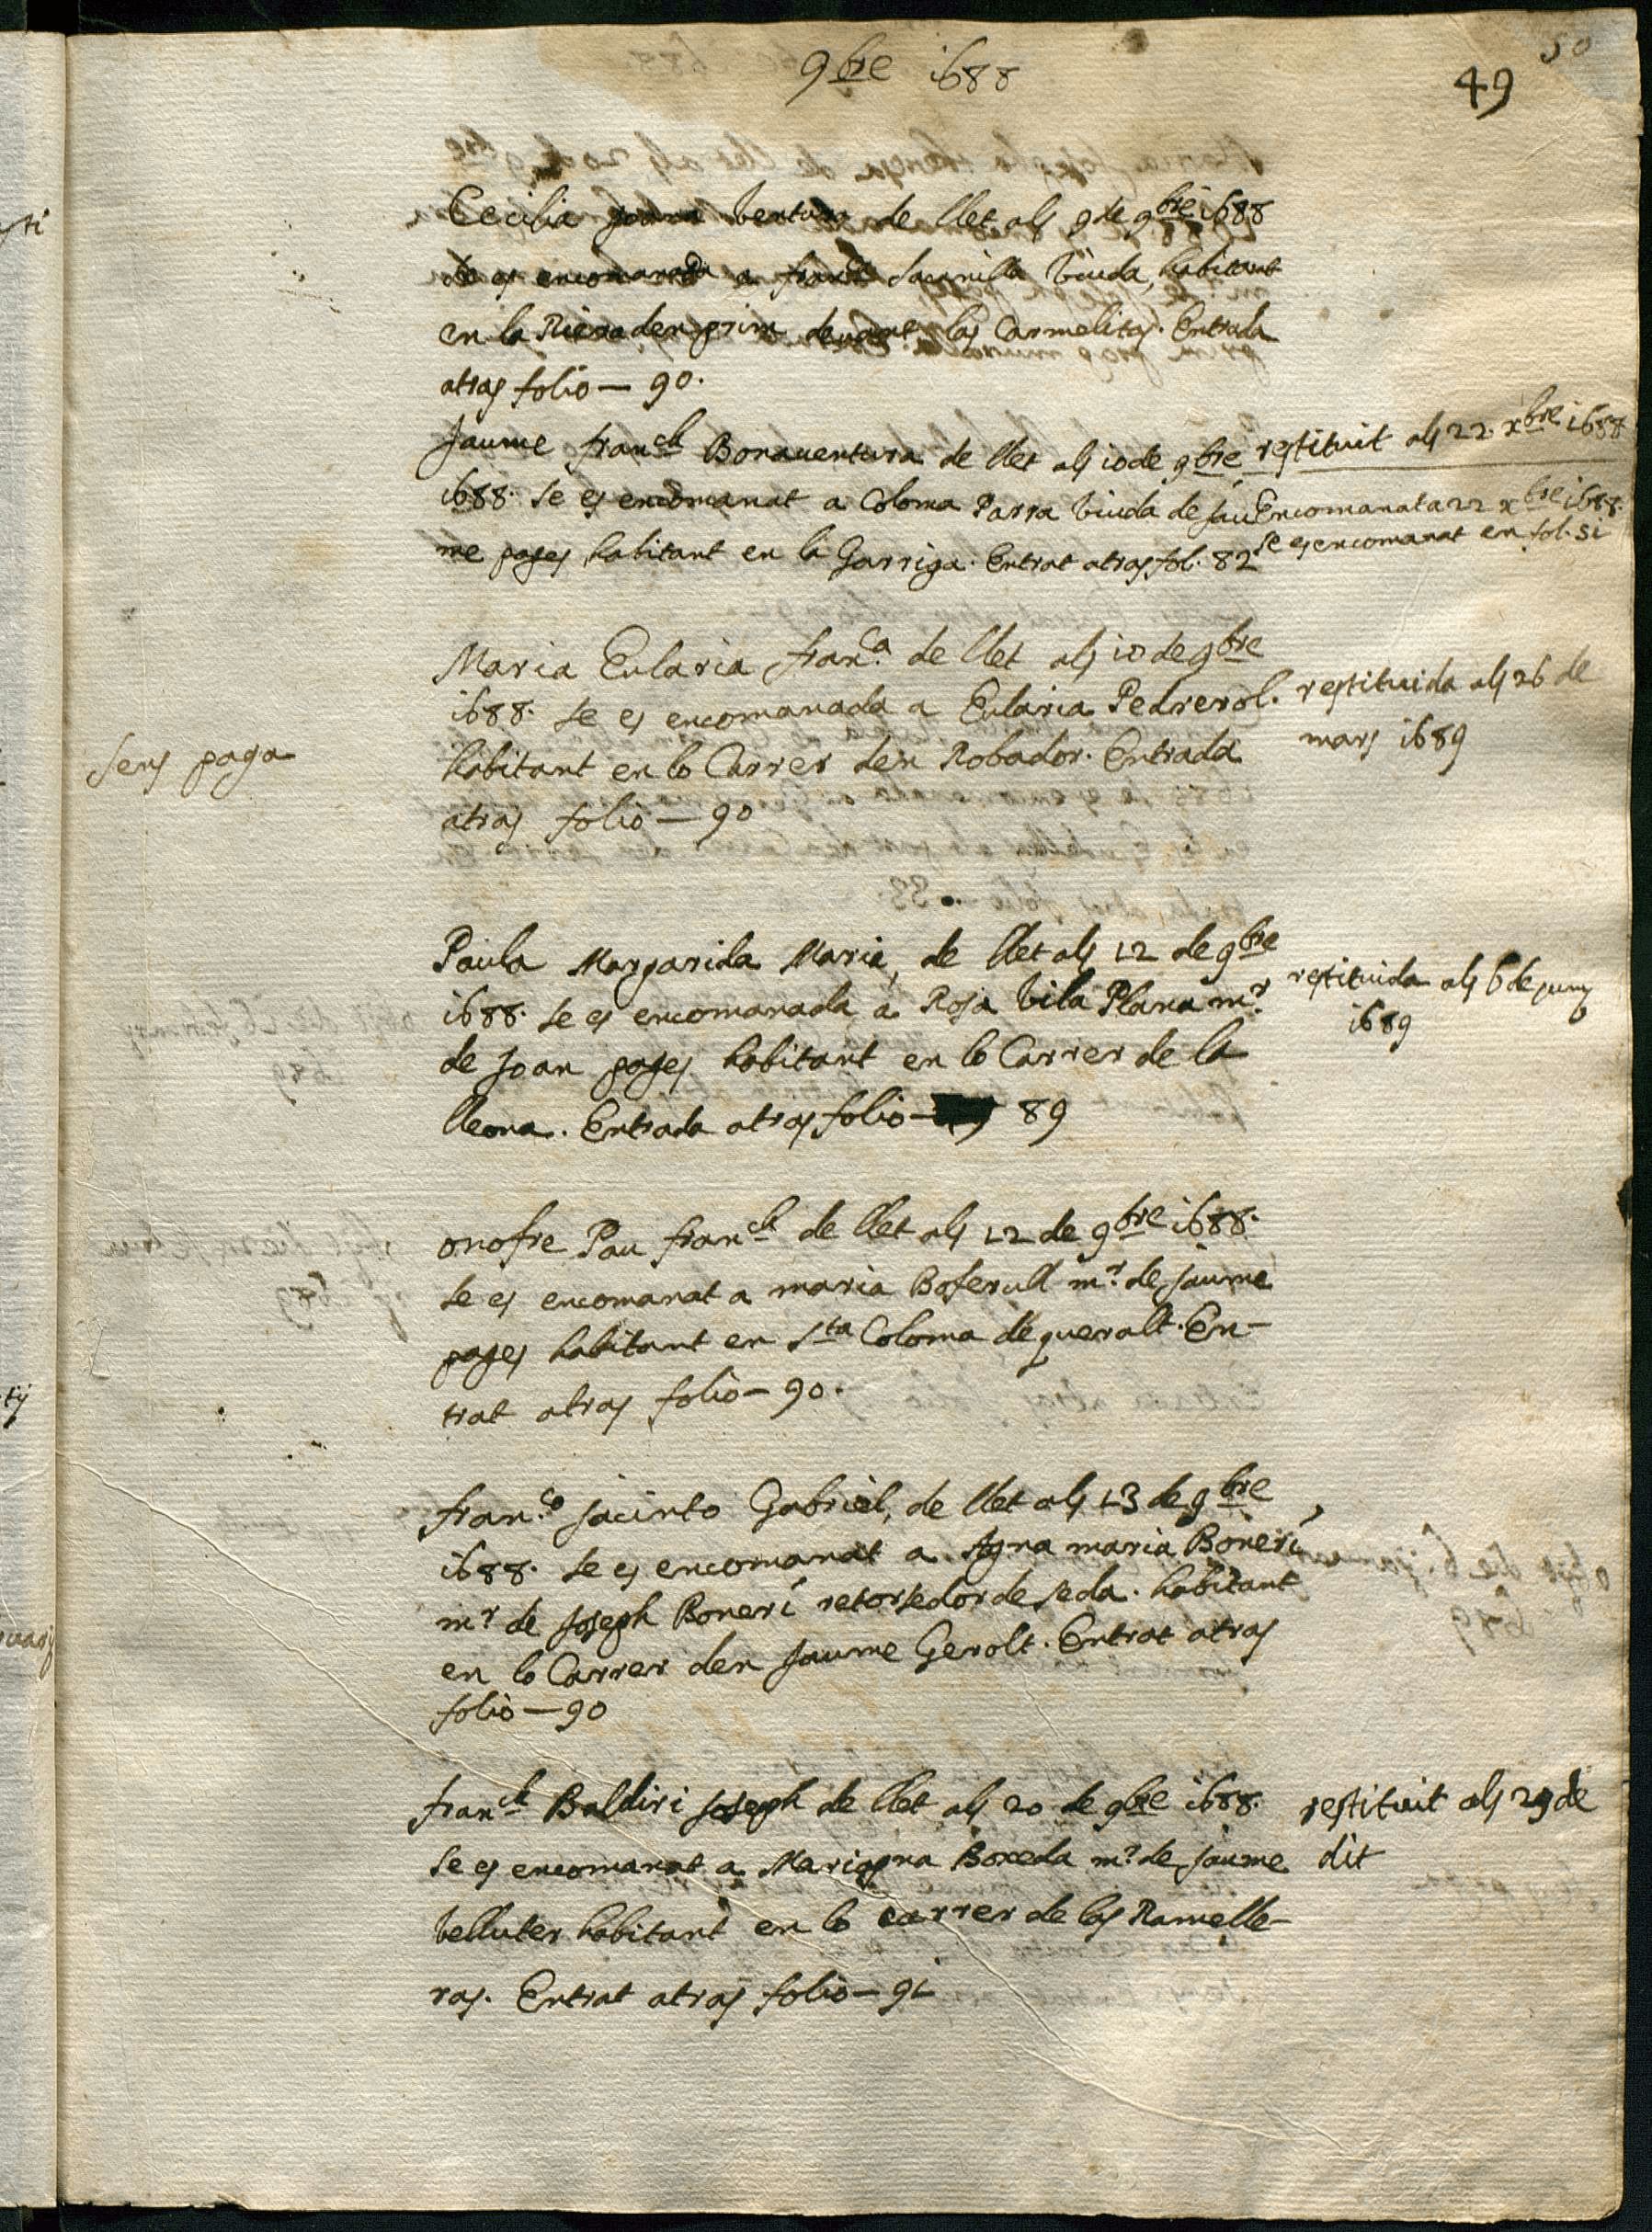 9bre 1688
50
49
Cecilia Juana Ventura de llet als 9 de 9bre 1688
se es encomanada a Franca Viuda, habitant
en la Riera den prim devant las Carmelitas. Entrada
atras folio — 90.
Jaume Franch Bonaventura de llet als 10 de 9bre
1688. se es encomanat a Coloma Parra Viuda de Jau
me pages habitant en la Garriga. Entrat atras fol. 82
restituit als 22. xbre 1688
Encomanat a 22 xbre 1688.
se es encomanat en fol. 51
Sens paga
Maria Eularia Fran.ca de llet als 10 de 9bre
1688. se es encomanada a Eularia Pedrerol.
habitant en lo Carrer den Robador. Entrada
atras folio — 90
restituida als 26 de
mars 1689
Paula Margarida Maria, de llet als 12 de 9bre
1688. se es encomanada a Rosa Vila Plana mr.
de Joan pages habitant en lo Carrer de la
lleona. Entrada atras folio — 89
restituida als 6 de juny
1689
onofre Pau Franch de llet als 12 de 9bre 1688.
se es encomanat a maria Boferull mr. de Jaume
pages habitant en Sta Coloma de queralt. En-
trat atras folio — 90.
Fran.co Jacinto Gabriel, de llet als 13 de 9bre
1688. se es encomanat a Agna maria Bonerí
mr de Joseph Bonerí retorsedor de seda. habitant
en lo Carrer den Jaume Gerolt. Entrat atras
folio — 90
Franch Baldiri Joseph de llet als 20 de 9bre 1688.
se es encomanat a Mariagna Boxeda mr. de Jaume
velluter habitant en lo carrer de las Ramelle-
ras. Entrat atras folio — 91
restituit als 29 de
dit